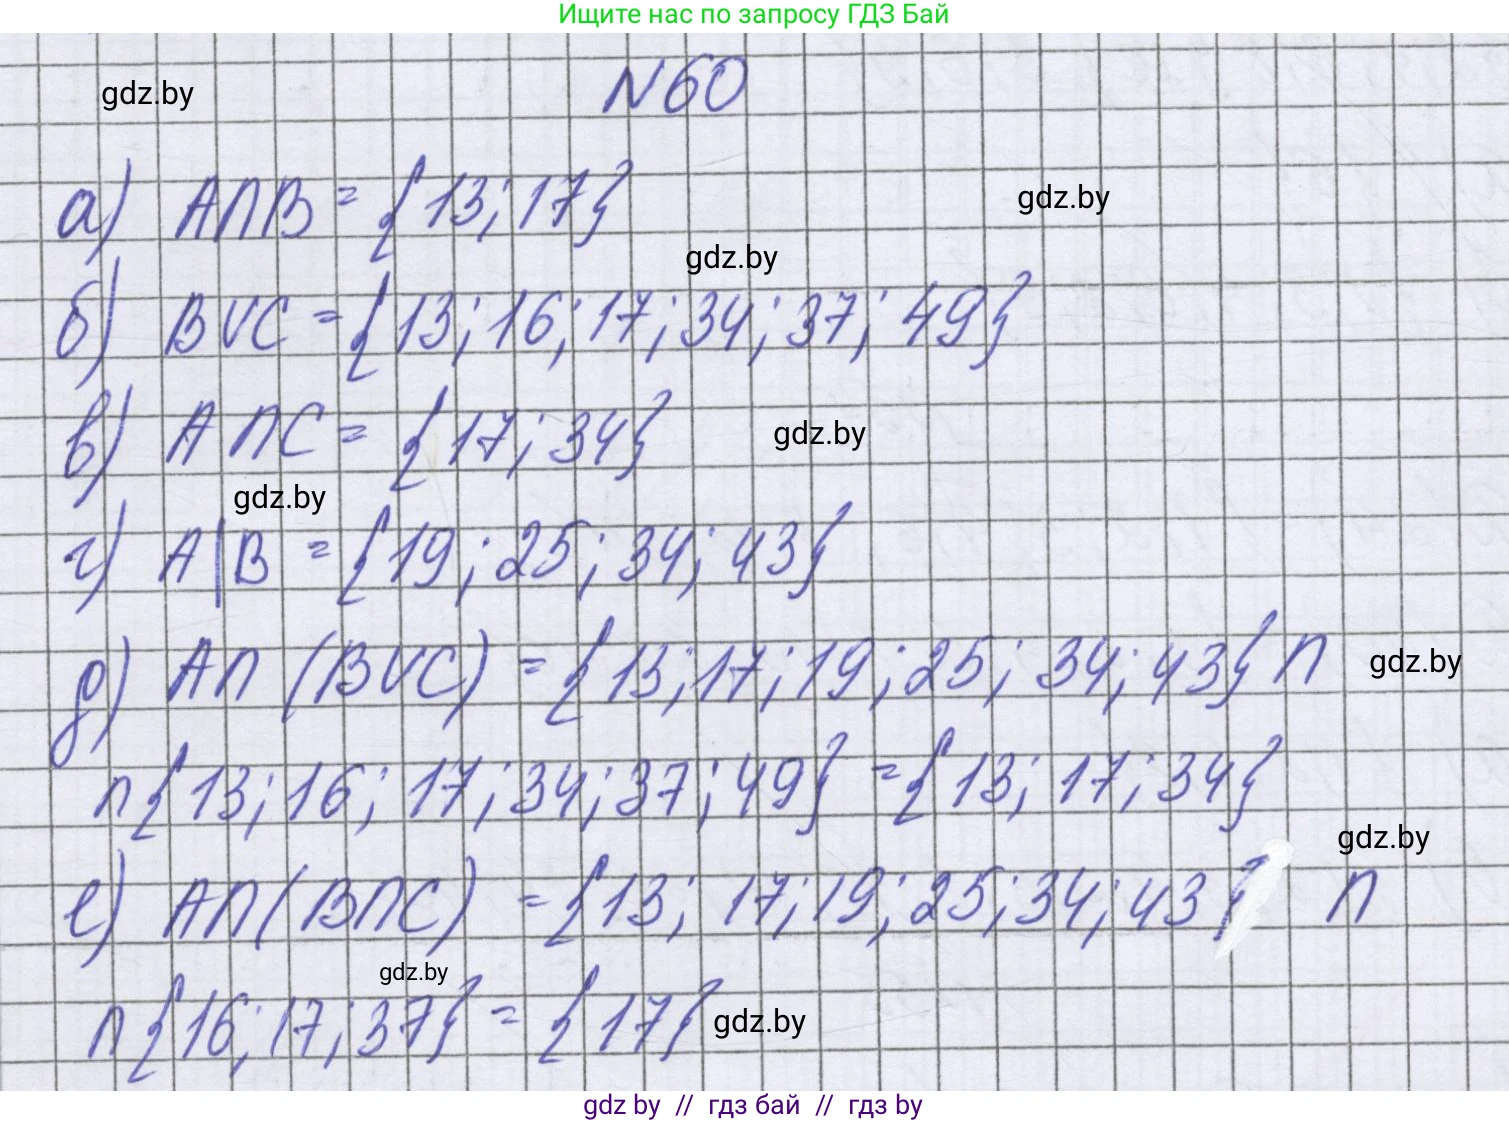 Ищите нас по запросу ГДЗ Бай
N60
gdz.by
а) A∩B = {13; 17}
gdz.by
gdz.by
б) B∪C = {13; 16; 17; 34; 37; 49}
в) A∩C = {17; 34}
gdz.by
gdz.by
г) A|B = {19; 25; 34; 43}
д) A∩(B∪C) = {13; 17; 19; 25; 34; 43} ∩
gdz.by
∩{13; 16; 17; 34; 37; 49} = {13; 17; 34}
gdz.by
е) A∩(B∩C) = {13; 17; 19; 25; 34; 43} ∩
gdz.by
∩{16; 17; 37} = {17}
gdz.by
gdz by // гдз бай // гдз by